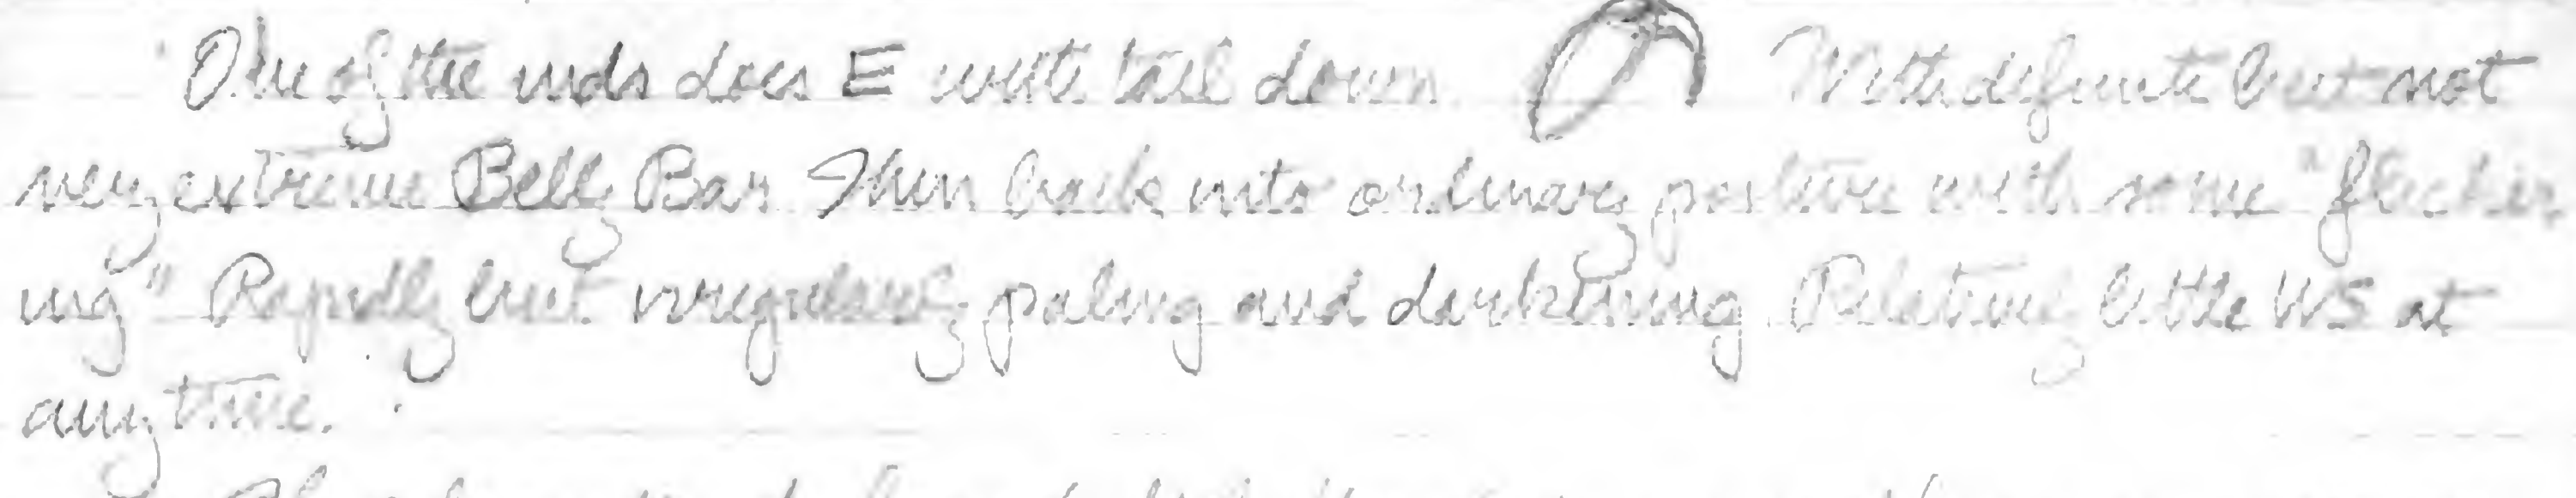 One of the inds does E with tail down. With definite but not
very extreme Belly Bar. Then back into ordinary posture with some "flicker
ing" Rapidly but irregularly paling and darkening. Relatively little WS at
any time.